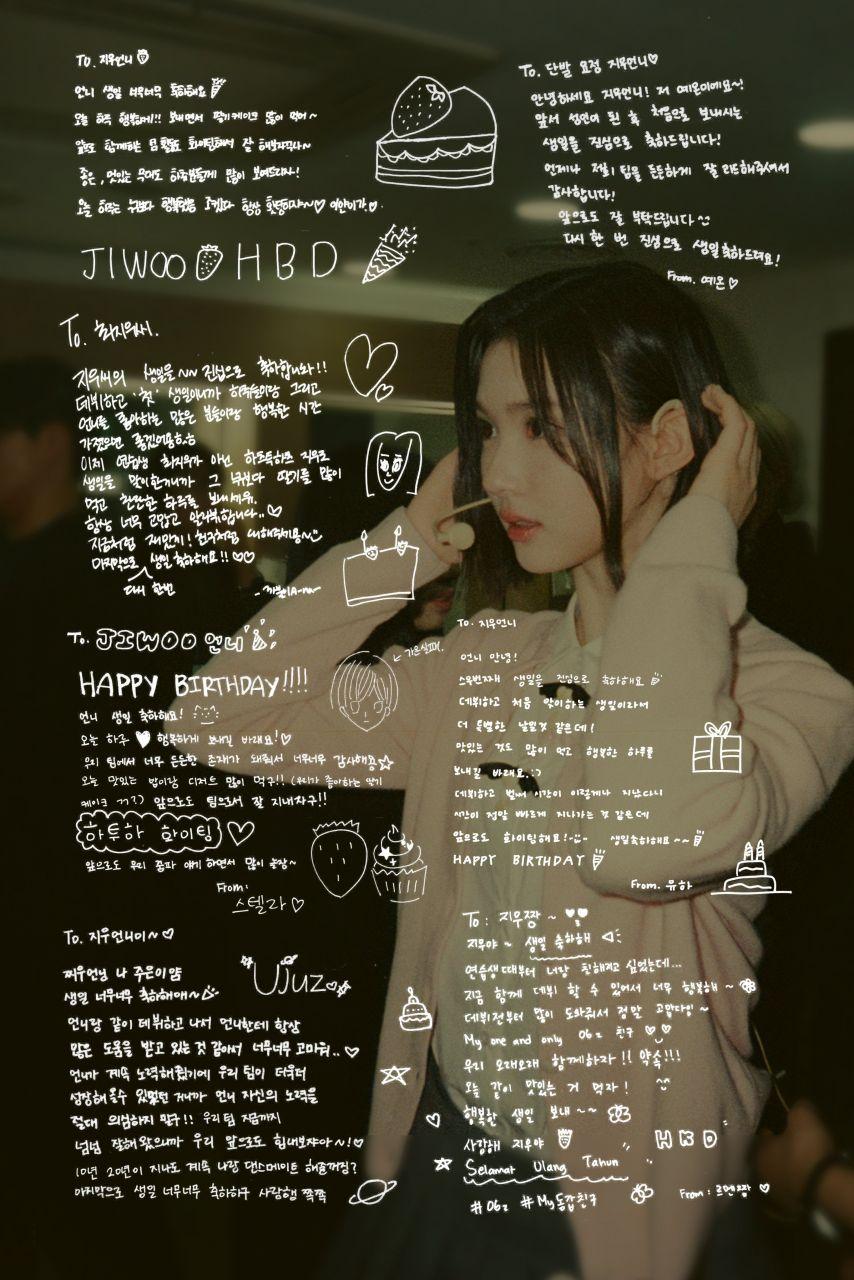 To. 지우언니
언니 생일 너무너무 축하해요
오늘 하루 행복하게!! 보내면서 딸기케이크 많이 먹어~
앞으로 함께하는 활동도 화이팅해서 잘 해보자구나~
좋은, 멋있는 무대도 하투하들께 많이 보여드리자!
오늘 하루는 누구보다 행복했음 좋겠다 항상 화이팅이야~♡ 이안이가♡.
JIWOO HBD
To. 단발 요정 지우언니♡
안녕하세요 지우언니! 저 예온이에요~!
앞서 성인이 된 후 처음으로 보내시는
생일을 진심으로 축하드립니다!
언제나 저희 팀을 든든하게 잘 리드해주셔서
감사합니다!
앞으로도 잘 부탁드립니다^^
다시 한 번 진심으로 생일축하드려요!
From. 예온♡
To. 최지우씨.
지우씨의 생일을~~ 진심으로 축하합니다!!
데뷔하고 '첫' 생일이니까 하츄들이랑 그리고
언니를 좋아하는 많은 분들이랑 행복한 시간
가졌으면 좋겠어용ㅎㅎ
이제 연습생 최지우가 아닌 하츠투하츠 지우로
생일을 맞이한거니까 그 누구보다 딸기를 많이
먹고 찬란한 하루를 보내세유.
항상 너무 고맙고 알라뷰합니다..♡
지금처럼 재밌게! 친구처럼 대해주세용~
마지막으로 생일축하해요!!♡♡
다시 한번
To. JIWOO 언니
HAPPY BIRTHDAY!!!!
언니 생일 축하해요!
오늘 하루 ♥ 행복하게 보내길 바래요!♡
우리 팀에서 너무 든든한 존재가 돼줘서 너무너무 감사해용☆
오늘 맛있는 밥이랑 디저트 많이 먹구!! (우리가 좋아하는 딸기
케이크 ㄲ?) 앞으로도 팀으로서 잘 지내자구!!
하투하 화이팅 ♡
앞으로도 우리 종파 얘기 하면서 많이 놀장~
From:
스텔라 ♡
가은실패.
To. 지우언니
언니 안녕!
스무번째 생일을 진심으로 축하해요
데뷔하고 처음 맞이하는 생일이라서
더 특별한 날일것 같은데!
맛있는 것도 많이 먹고 행복한 하루를
보내길 바래요.:)
데뷔하고 벌써 시간이 이렇게나 지났다니
시간이 정말 빠르게 지나가는 것 같은데
앞으로도 화이팅해요! 생일축하해요~~
HAPPY BIRTHDAY
From. 유하
To. 지우언니이~♡
찌우언닝 나 주은이얌
생일 너무너무 축하해애~
언니랑 같이 데뷔하고 나서 언니한테 항상
많은 도움을 받고 있는 것 같아서 너무너무 고마워..♡
언니가 계속 노력해줬기에 우리 팀이 더욱더
성장해올수 있었던 거니까 언니 자신의 노력을
절대 의심하지 말구!! 우리 팀 지금까지
넘넘 잘해왔으니까 우리 앞으로도 힘내보쟈아~!♡
10년 20년이 지나도 계속 나랑 댄스메이트 해줄꺼징?
마지막으로 생일 너무너무 축하하구 사랑행 쪽쪽
UJUZ
To: 지우짱 ~ ♥♥
지우야 ~ 생일 축하해
연습생때부터 너랑 친해지고 싶었는데...
지금 함께 데뷔 할 수 있어서 너무 행복해 ~
데뷔전부터 많이 도와줘서 정말 고맙다잉~
My one and only 06z 친구 ♡♡
우리 오래오래 함께하자!! 약속!!!
오늘 같이 맛있는 거 먹자! ^^
행복한 생일 보내~~
사랑해 지우야 HKD
Selamat Ulang Tahun
#06z #My동갑친구
From: 카멘짱 ♡